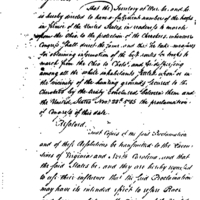 That the Secretary of War be, and he
is hereby directed to have a sufficient number of the troops
in service of the United States, in readiness to march
from the Ohio to the protection of the Cherokees, whenever
Congress shall direct the same; and that he take measures
for obtaining information of the best routes for troops to
march from the Ohio to Chota; and for dispersing
among all the white inhabitants settled upon or in
the vicinity of the hunting grounds secured to the
Cherokees by the treaty concluded between them and
the United States Novr 28th 1785 the proclamation
of Congress of this date.
Resolved.
That Copies of the said Proclamation
and of these Resolutions be transmitted to the Execu-
tives of Virginia and North Carolina, and that
the said States be, and they are hereby requested
to use their influence that the said Proclamation
may have its intended effect to